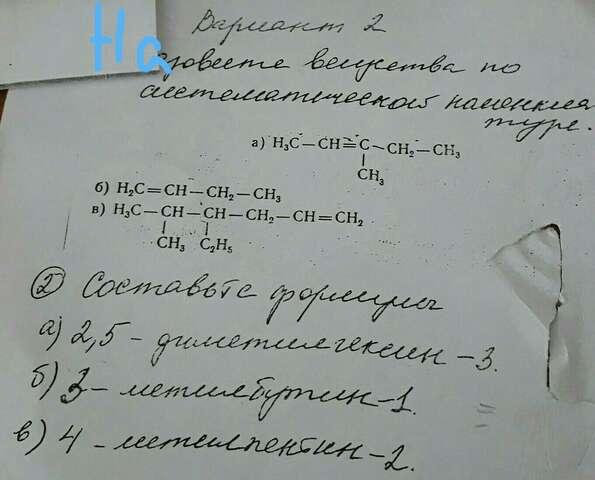 Вариант 2
На
зовите вещества по
систематической номенкла
туре.
а) H₃C—CH=C—CH₂—CH₃
CH₃
б) H₂C=CH—CH₂—CH₃
в) H₃C—CH—CH—CH₂—CH=CH₂
CH₃ C₂H₅
② Составьте формулы
а) 2,5-диметилгексин-3.
б) 3-метилбутин-1.
в) 4-метилпентин-2.